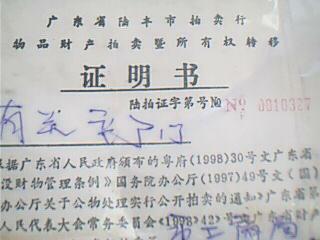 广东省陆丰市拍卖行
物品财产拍卖暨所有权转移
证明书
陆拍证字第号№ № 0010327
有关部门
根据广东省人民政府颁布的粤府(1998)30号文广东省
设财物管理条例》国务院办公厅(1997)49号文(国
办公厅关于公物处理实行公开拍卖的通知》广东省第
人民代表大会常务委员(1998)42号文广东省财产